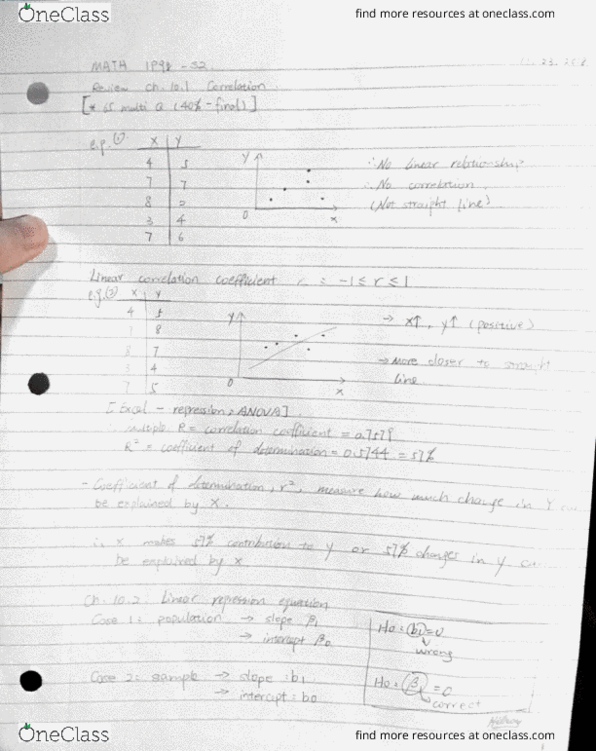 OneClass
find more resources at oneclass.com
MATH
Review ch. 10.1 Correlation
[* 65 multi Q (40% - final)]
e.g. (1) X Y
4 5
7 7
8 0
3 4
7 6
Y
0 X
∴ No linear relationship
∴ No correlation
(Not straight line)
Linear correlation coefficient r = -1 ≤ r ≤ 1
e.g. (2) X Y
4
8
7
4
7 5
Y
0 X
→ X↑, Y↑ (positive)
→ More closer to straight
line
[Excel - regression, ANOVA]
multiple R = correlation coefficient = 0.7579
R² = coefficient of determination = 0.5744 = 57%
- Coefficient of determination, r², measure how much change in Y
be explained by X.
X makes 57% contribution to Y or 57% changes in Y
be explained by X
Ch. 10.2: Linear regression equation
Case 1: population → slope β₁
→ intercept β₀
Case 2: sample → slope: b₁
→ intercept: b₀
H₀ = b₁ = 0
wrong
H₀ = β₁ = 0
correct
OneClass
find more resources at oneclass.com